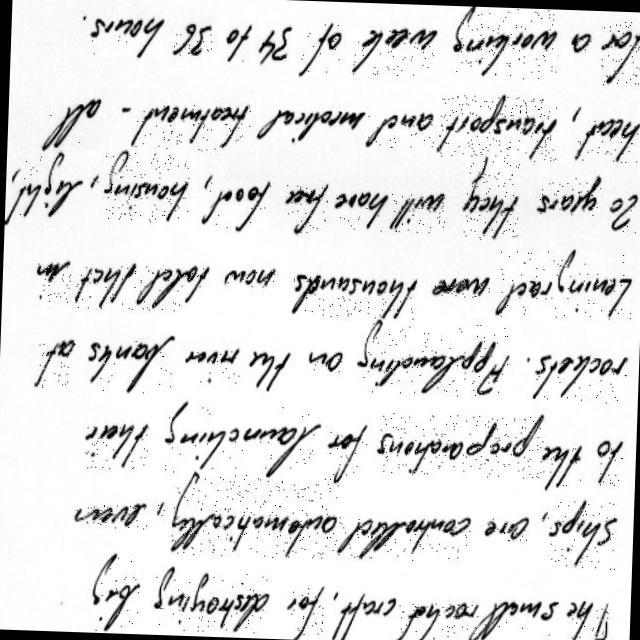 The small rocket craft, for destroying big
ships, are controlled automatically, even
to the preparations for launching their
rockets. Applauding on the river banks at
Leningrad were thousands now told that in
20 years they will have free food, housing, light,
heat, transport and medical treatment - all
for a working week of 34 to 36 hours.